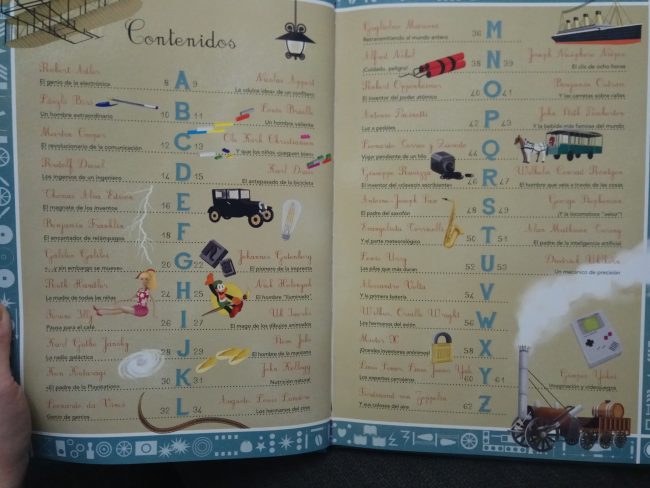 Contenidos
Robert Adler
El genio de la electrónica
8
A
9
Nicolas Appert
La valiosa idea de un confitero
László Biró
Un hombre extraordinario
10
B
11
Louis Braille
Un hombre valiente
Martin Cooper
El revolucionario de la comunicación
12
C
13
Ole Kirk Christiansen
Y que los niños jueguen bien
Rudolf Diesel
Los ingenios de un ingeniero
14
D
15
Karl Drais
El antepasado de la bicicleta
Thomas Alva Edison
El magnate de los inventos
16
E
Benjamin Franklin
El encantador de relámpagos
18
F
Galileo Galilei
...y sin embargo se mueve
20
G
Johannes Gutenberg
El pionero de la imprenta
Ruth Handler
La madre de todas las niñas
24
H
25
El hombre "iluminado"
Pausa para el café
26
I
27
Ub Iwerks
El mago de los dibujos animados
Karl Guthe Jansky
La radio galáctica
28
J
Steve Jobs
El hombre de la manzana
Ken Kutaragi
«El padre de la PlayStation»
30
K
31
John Kellogg
Nutrición natural
Leonardo da Vinci
Genio de genios
32
L
34
Auguste Louis Lumière
Los hermanos del cine
Guglielmo Marconi
Retransmitiendo al mundo entero
36
M
Alfred Nobel
¡Cuidado, peligro!
38
N
39
Joseph Nicéphore Niépce
El clic de ocho horas
Robert Oppenheimer
El inventor del poder atómico
40
O
41
Benjamin Outram
Y las carretas sobre raíles
Luz a pedales
42
P
John Stith Pemberton
Y la bebida más famosa del mundo
Viaje pendiente de un hilo
44
Q
Giuseppe Ravizza
El inventor del «clavicordio escribiente»
46
R
47
Wilhelm Conrad Röntgen
El hombre que veía a través de las cosas
Antoine-Joseph Sax
El padre del saxofón
48
S
49
George Stephenson
¡Y la locomotora "veloz"!
Evangelista Torricelli
Y el parte meteorológico
50
T
51
Alan Mathison Turing
El padre de la inteligencia artificial
Lewis Urry
Las pilas que más duran
52
U
53
Un mecánico de precisión
Alessandro Volta
Y la primera batería
54
V
Wilbur, Orville Wright
Los hermanos del avión
56
W
Mister X
¡Grandes inventores anónimos!
58
X
59
Linus Yale, Linus Yale
Los expertos cerrajeros
60
Y
61
Gunpei Yokoi
Imaginación y videojuegos
Ferdinand von Zeppelin
Y sus colosos del aire
62
Z